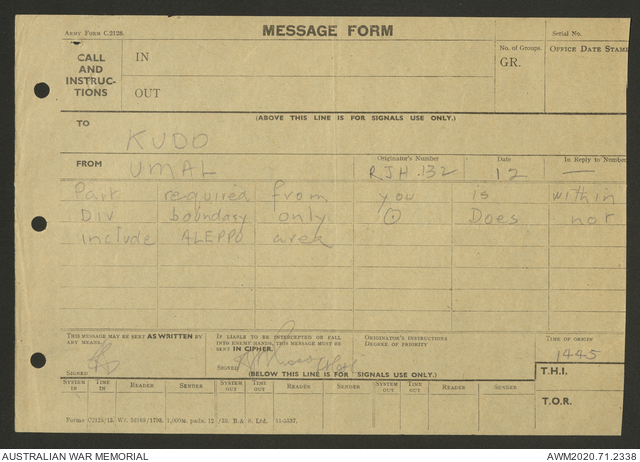 ARMY FORM C.2128. MESSAGE FORM Serial No.
CALL AND INSTRUCTIONS IN No. of Groups. GR. OFFICE DATE STAMP
OUT
(ABOVE THIS LINE IS FOR SIGNALS USE ONLY.)
TO KUDO
FROM UMAL Originator's Number RJH.132 Date 12 In Reply to Number —
Part required from you is within
Div boundary only ⊙ Does not
include ALEPPO area
THIS MESSAGE MAY BE SENT AS WRITTEN BY ANY MEANS. IF LIABLE TO BE INTERCEPTED OR FALL INTO ENEMY HANDS, THIS MESSAGE MUST BE SENT IN CIPHER. ORIGINATOR'S INSTRUCTIONS DEGREE OF PRIORITY TIME OF ORIGIN
1445
SIGNED SIGNED
(BELOW THIS LINE IS FOR SIGNALS USE ONLY.) T.H.I.
SYSTEM IN TIME IN READER SENDER SYSTEM OUT TIME OUT READER SENDER SYSTEM OUT TIME OUT READER SENDER
T.O.R.
Forms C2128/13. 1,000M. pads. 12/39. B.A.&. Ltd.
AUSTRALIAN WAR MEMORIAL AWM2020.71.2338